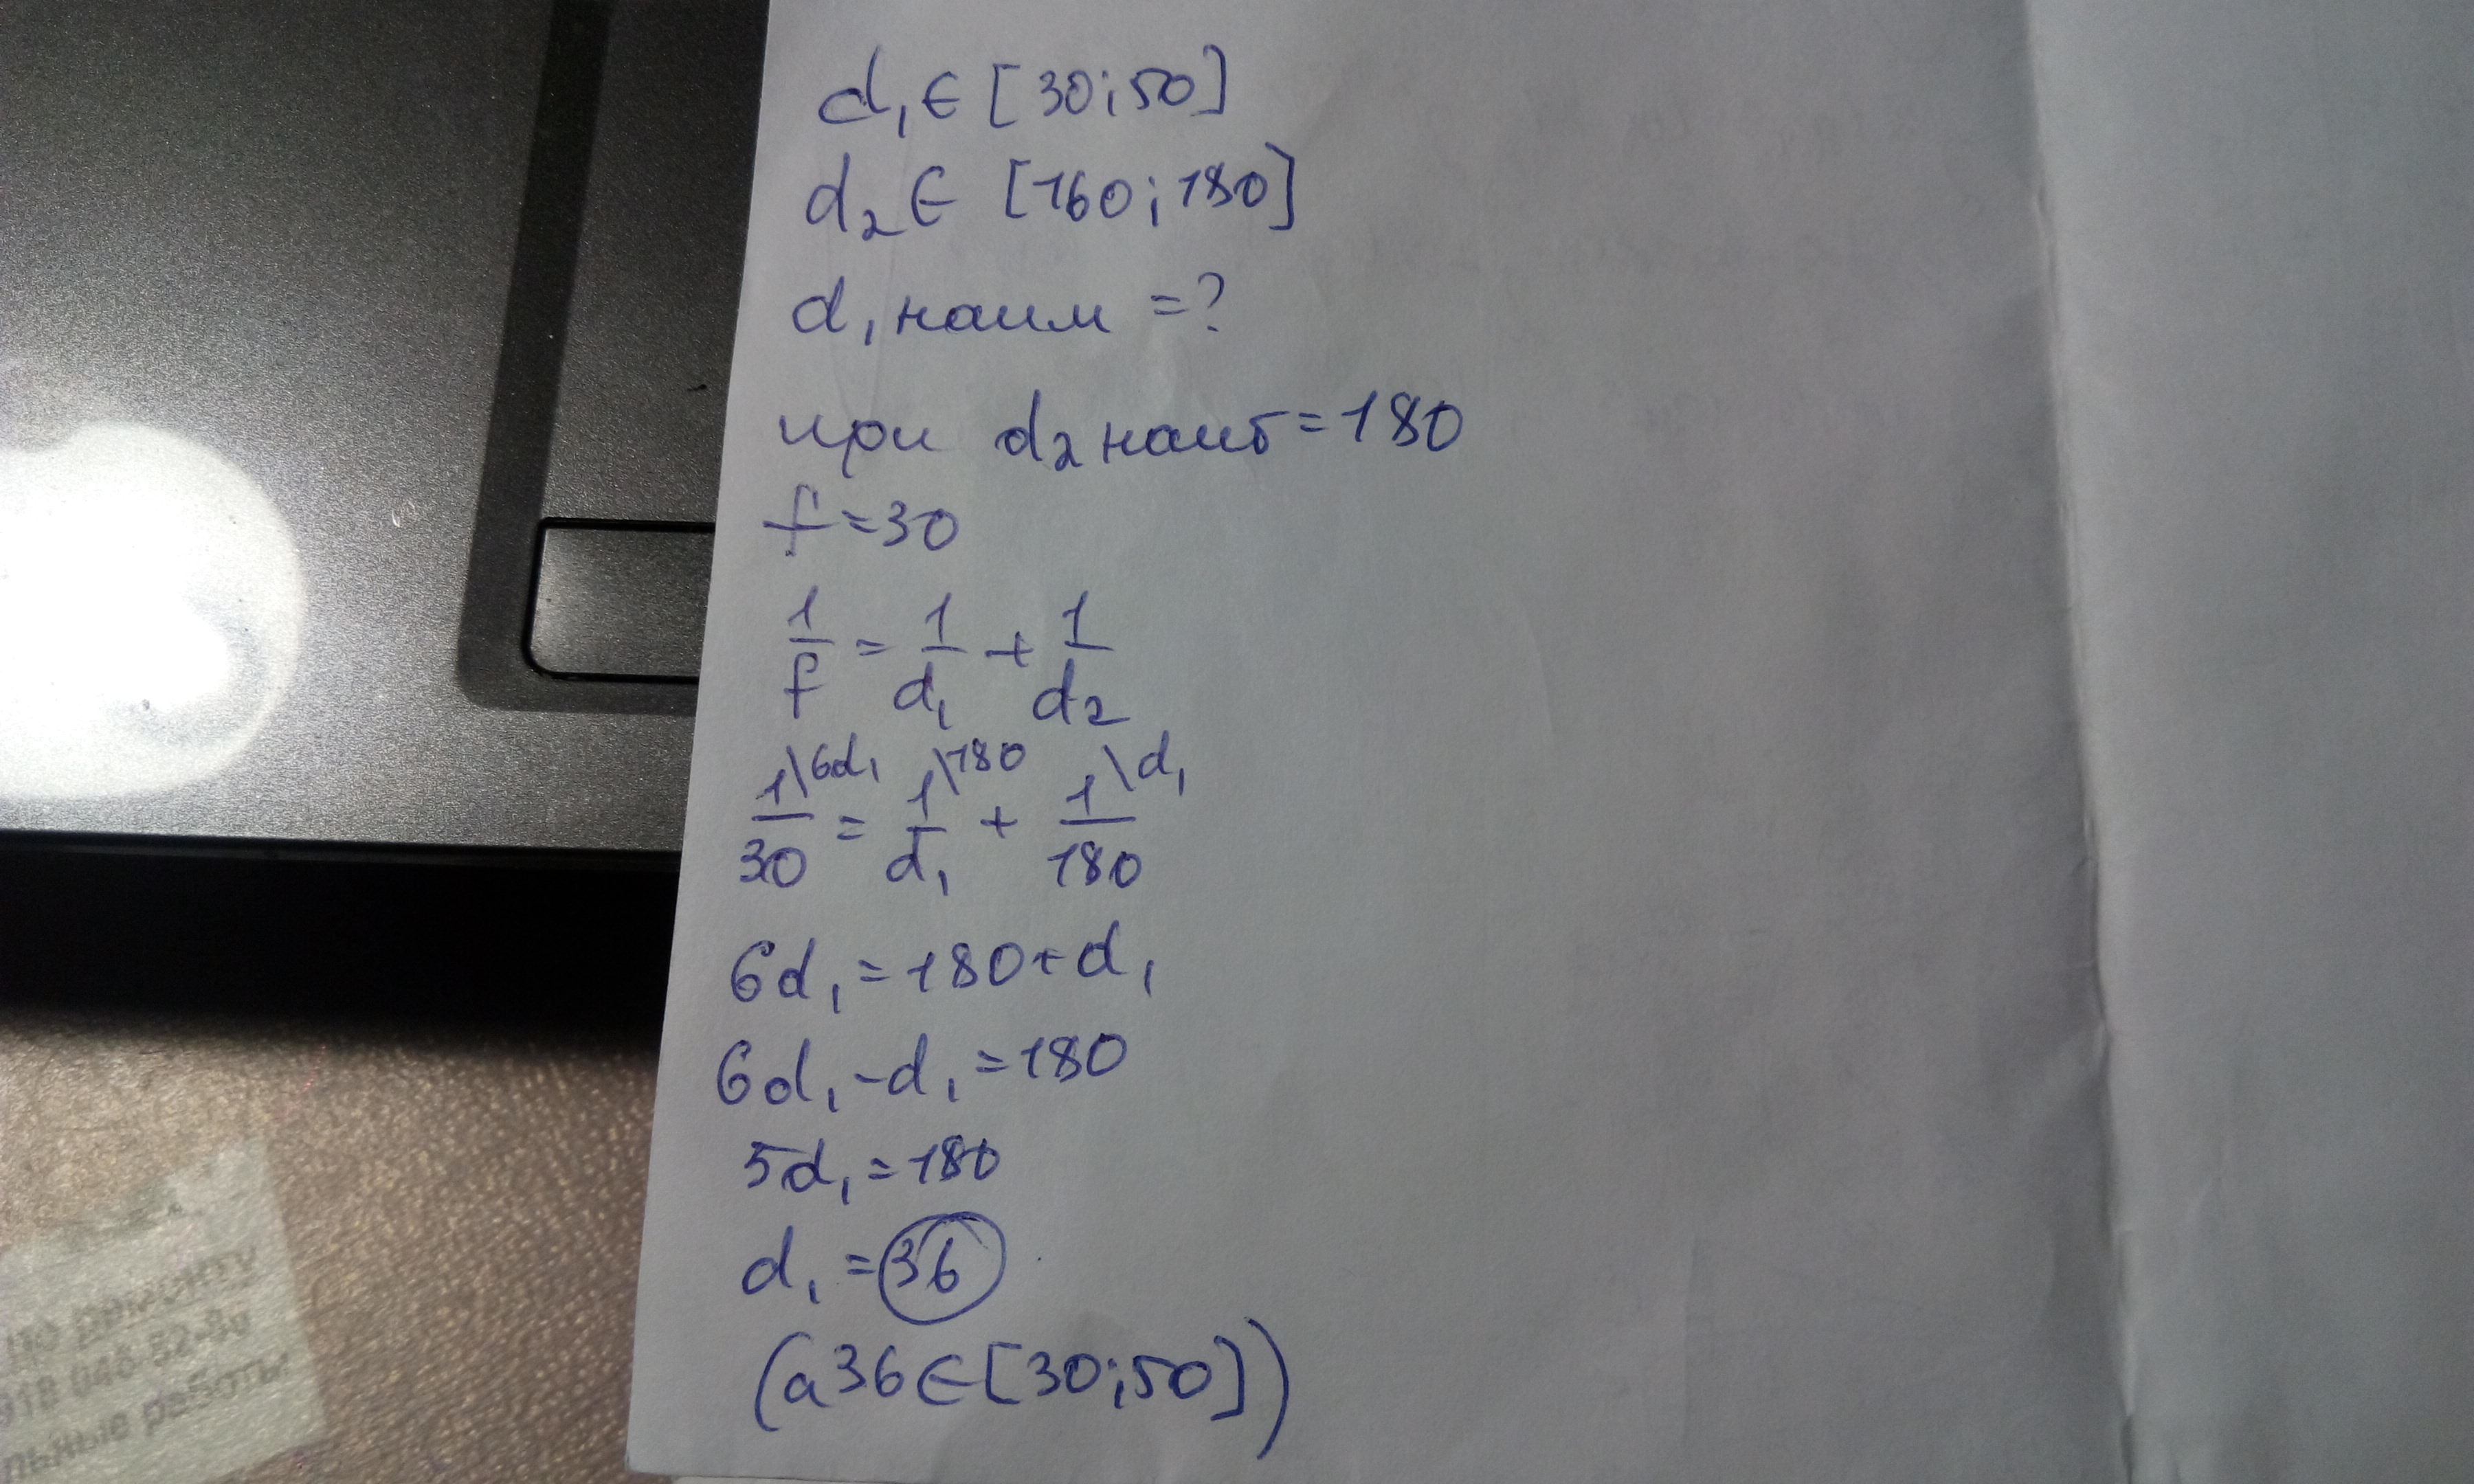 d₁ ∈ [30; 50]
d₂ ∈ [160; 180]
d₁ наим = ?
при d₂ наиб = 180
f = 30
1/f = 1/d₁ + 1/d₂
1\6d₁/30 = 1\180/d₁ + 1\d₁/180
6d₁ = 180 + d₁
6d₁ - d₁ = 180
5d₁ = 180
d₁ = 36
(а 36 ∈ [30; 50])
по ремонту
918 046 82
работы